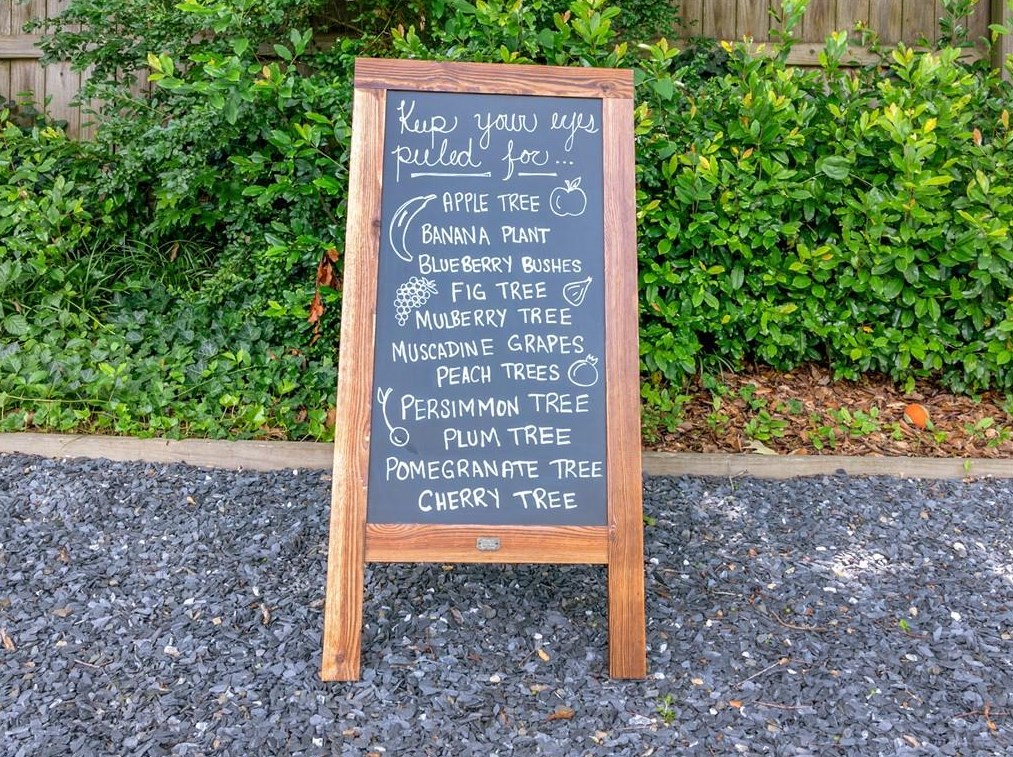 Keep your eyes
peeled for...
APPLE TREE
BANANA PLANT
BLUEBERRY BUSHES
FIG TREE
MULBERRY TREE
MUSCADINE GRAPES
PEACH TREES
PERSIMMON TREE
PLUM TREE
POMEGRANATE TREE
CHERRY TREE